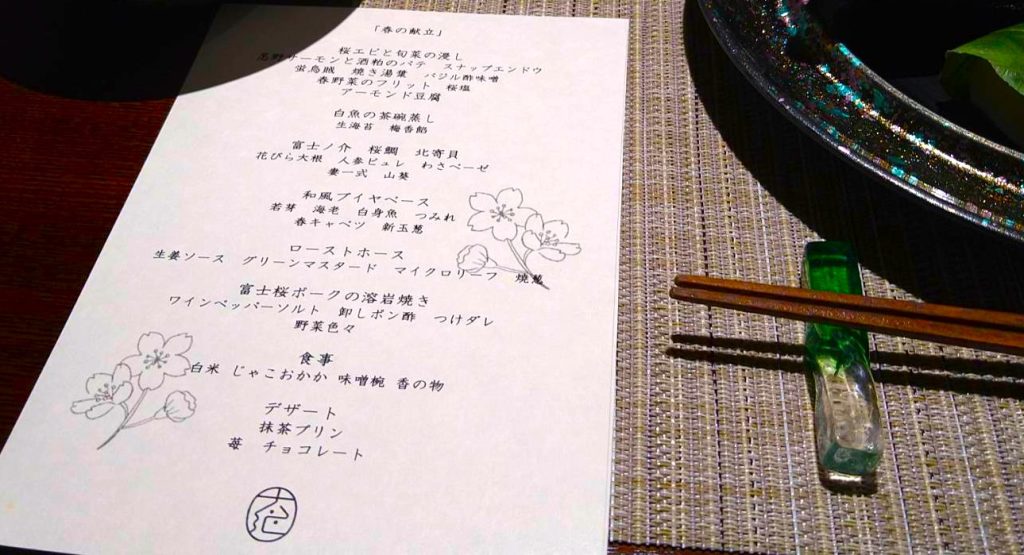 「春の献立」
桜エビと旬菜の浸し
忍野サーモンと酒粕のパテ　スナップエンドウ
蛍烏賊　焼き湯葉　バジル酢味噌
春野菜のフリット　桜塩
アーモンド豆腐
白魚の茶碗蒸し
生海苔　梅香餡
富士ノ介　桜鯛　北寄貝
花びら大根　人参ピュレ　わさベーゼ
妻一式　山葵
和風ブイヤベース
若芽　海老　白身魚　つみれ
春キャベツ　新玉葱
ローストホース
生姜ソース　グリーンマスタード　マイクロリーフ　焼葱
富士桜ポークの溶岩焼き
ワインペッパーソルト　卸しポン酢　つけダレ
野菜色々
食事
白米 じゃこおかか 味噌椀 香の物
デザート
抹茶プリン
苺　チョコレート